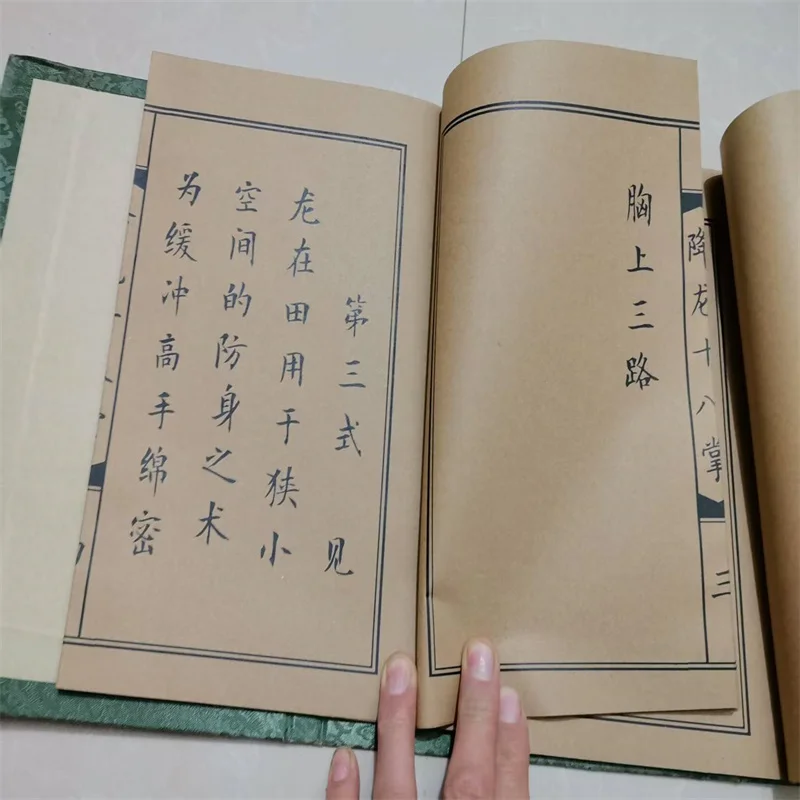 降龙十八掌
三
胸上三路
第三式 见
龙在田用于狭小
空间的防身之术
为缓冲高手绵密